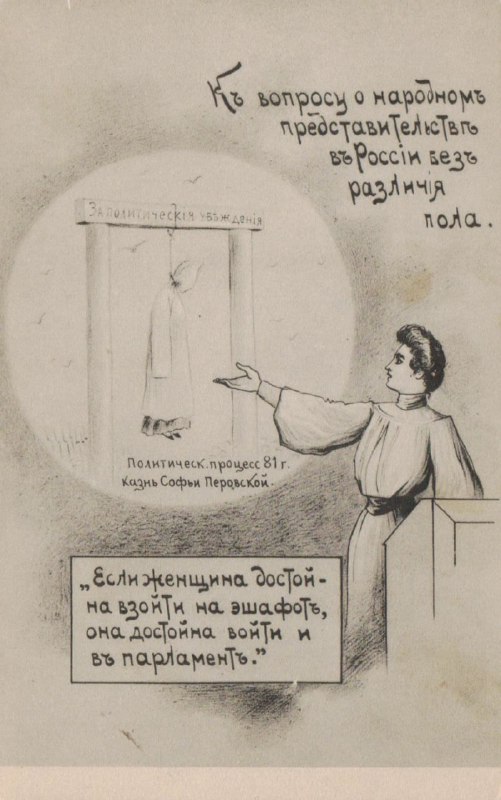 Къ вопросу о народномъ
представительствѣ
въ Россіи безъ
различія
пола.
За политическія убѣжденія
Политическ. процесс 81 г.
Казнь Софьи Перовской.
„Если женщина достой-
на взойти на эшафотъ,
она достойна войти и
въ парламентъ.”